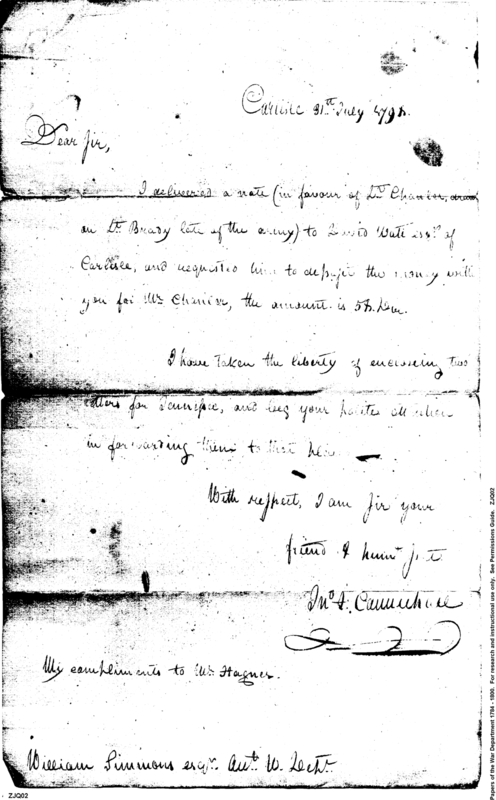 Carlisle 31st July 1798.
Dear Sir,
I delivered a note (in favour of Lt. Chanier,
on Lt. Brady late of the army) to David Watt esqr. of
Carlisle, and requested him to deposit the money with
you for Mr. Chanier, the amount is
I have taken the liberty of enclosing two
letters for and beg your polite attention
in forwarding them to that place
With respect, I am sir your
friend &
Jno.
My compliments to Mr. Hagner.
William Simmons esqr. W.
ZJQ02
Papers of the War Department 1784 - 1800. For research and instructional use only. See Permissions Guide. ZJQ02